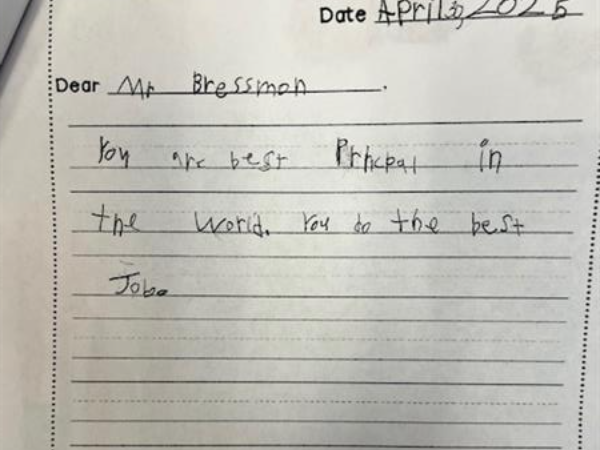 Date April 30, 2025
Dear Mr Bressmon.
You are best Prncpal in
the World. You do the best
Job.